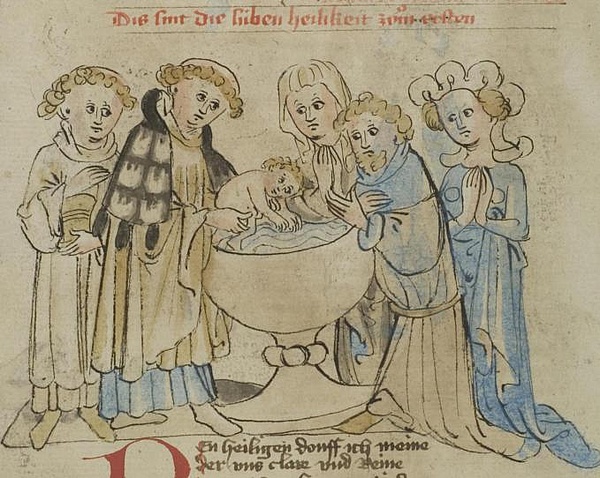 Dis sint die siben heilikeit zom ersten
Den heiligen douff ich meine
Der vns clare vnd Reine